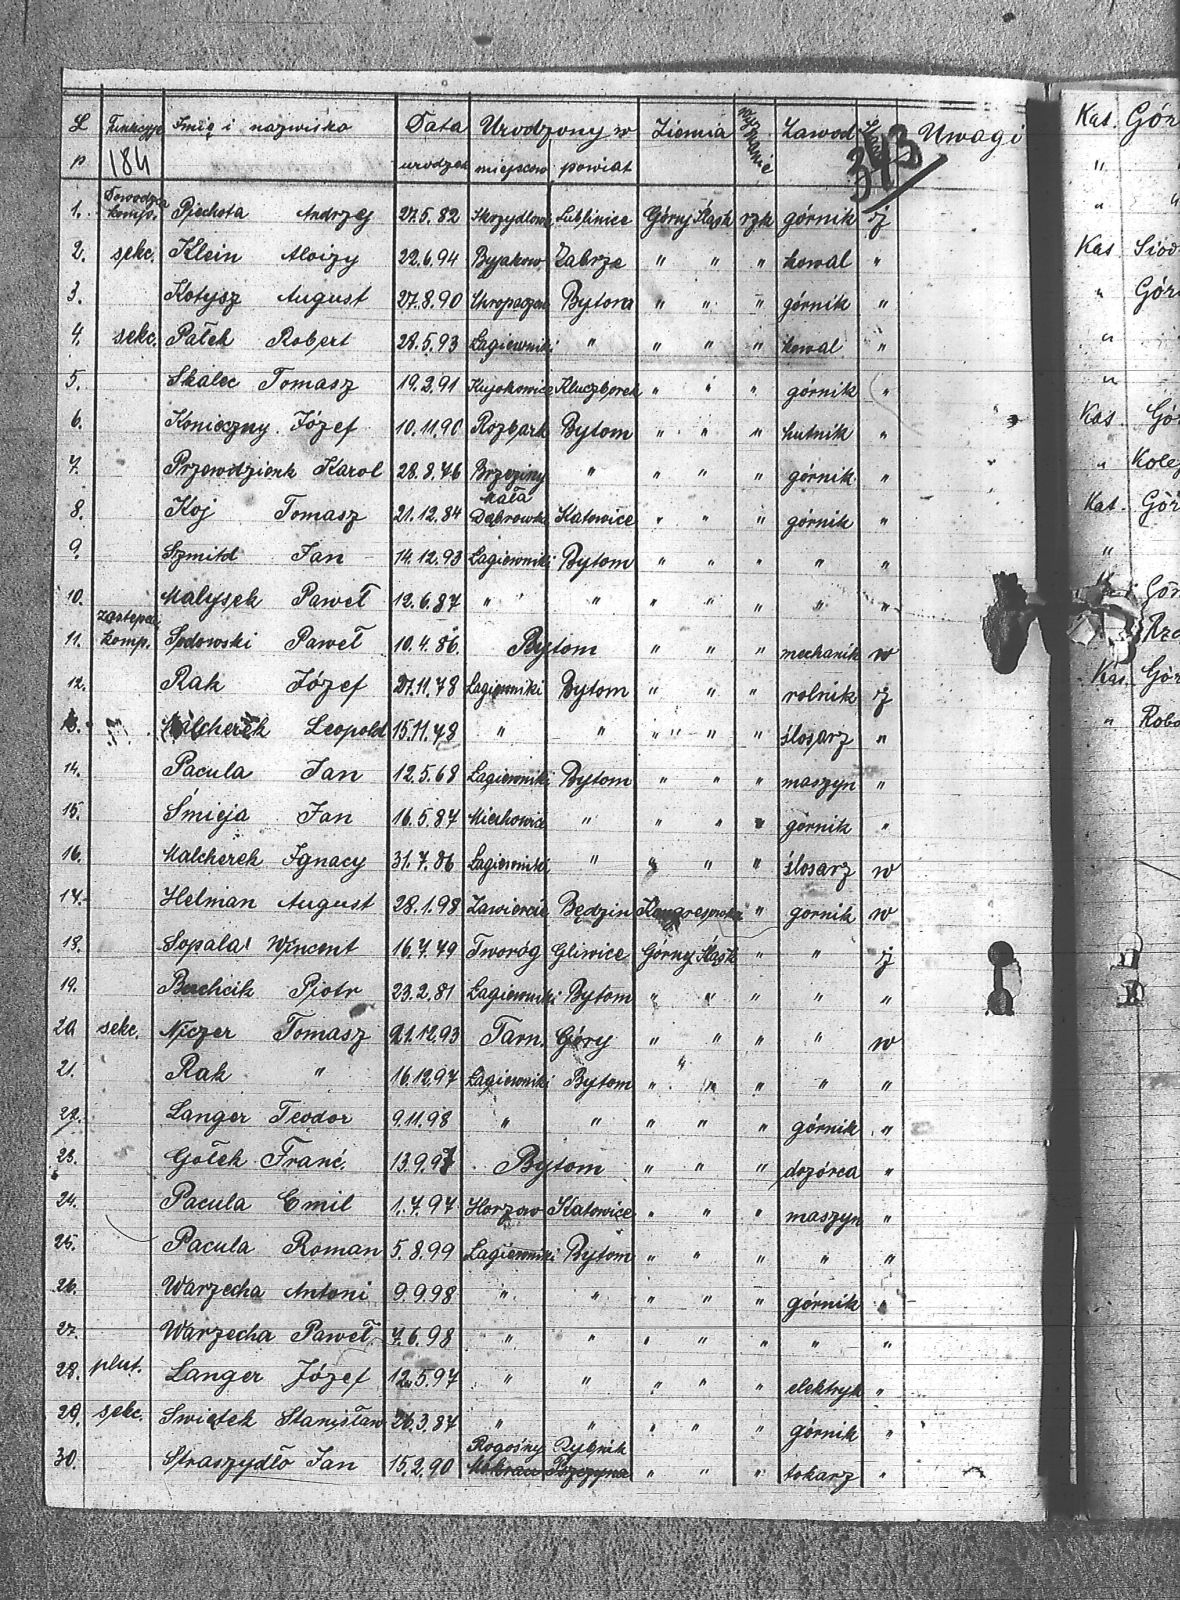 L Funkcyja Imię i nazwisko Data Urodzony w Ziemia wyznanie Zawod Uwagi
p 184 urodzen miejscow powiat 343
1. Dowódca komp. Piechota Andrzej 27.5.82 Skrzydłow Lubliniec Górny Śląsk rzk górnik ż
2. sekc. Klein Aloizy 22.6.94 Byjakow. Zabrze " " " kowal "
3. Kotysz August 27.8.90 Chropaczow Bytom " " " górnik "
4. sekc. Pałek Robert 28.5.93 Łagiewniki " " " " kowal "
5. Skalec Tomasz 19.2.91 Kujakowice Kluczborek " " " górnik "
6. Konieczny Józef 10.11.90 Rozbark Bytom " " " hutnik "
7. Przewdzienk Karol 28.8.76 Brzeziny " " " górnik "
8. Koj Tomasz 21.12.84 Mała Dąbrowka Katowice " " " górnik "
9. Szmitd Jan 14.12.93 Łagiewniki Bytom " " " " "
10. Małysek Paweł 12.6.87 " " " " " " " "
11. zastępca komp. Sodowski Paweł 10.4.86 Bytom " " " mechanik w
12. Rak Józef 27.11.78 Łagiewniki Bytom " " " rolnik ż
13. Malcherek Leopold 15.11.78 " " " " " ślosarz "
14. Pacula Jan 12.5.68 Łagiewniki Bytom " " " maszyn "
15. Śmieja Jan 16.5.87 Miechowice " " " " górnik "
16. Malcherek Ignacy 31.7.86 Łagiewniki " " " " ślosarz w
17. Helman August 28.1.98 Zawiercie Będzin Kongresowka " gornik w
18. Sopala Wincent 16.7.79 Tworóg Gliwice Górny Śląsk " " ż
19. Buchcik Piotr 23.2.81 Łagiewniki Bytom " " " " "
20. sekc. Niczer Tomasz 21.12.93 Tarn. Góry " " " " w
21. Rak " 16.12.97 Łagiewniki Bytom " " " " "
22. Langer Teodor 9.11.98 " " " " " górnik "
23. Gołek Franc. 13.9.97 Bytom " " " dozórca "
24. Pacula Emil 1.7.97 Horzow Katowice " " " maszyn "
25. Pacula Roman 5.8.99 Łagiewniki Bytom " " " " "
26. Warzecha Antoni 9.9.98 " " " " " górnik "
27. Warzecha Paweł 7.6.98 " " " " " " "
28. plut. Langer Józef 12.5.97 " " " " " elektryk "
29. sekc. Swiątek Stanisław 26.3.87 " " " " " górnik "
30. Straszydło Jan 15.2.90 Rogoźny Rybnik Mokrau Pszczyna " " " tokarz "
Kas. Gór
" "
Kas Siód
" Góra
Kas. Gó
" Kolej
Kat. Gór
"
Gór
Rze
Kas. Gór
" Robo